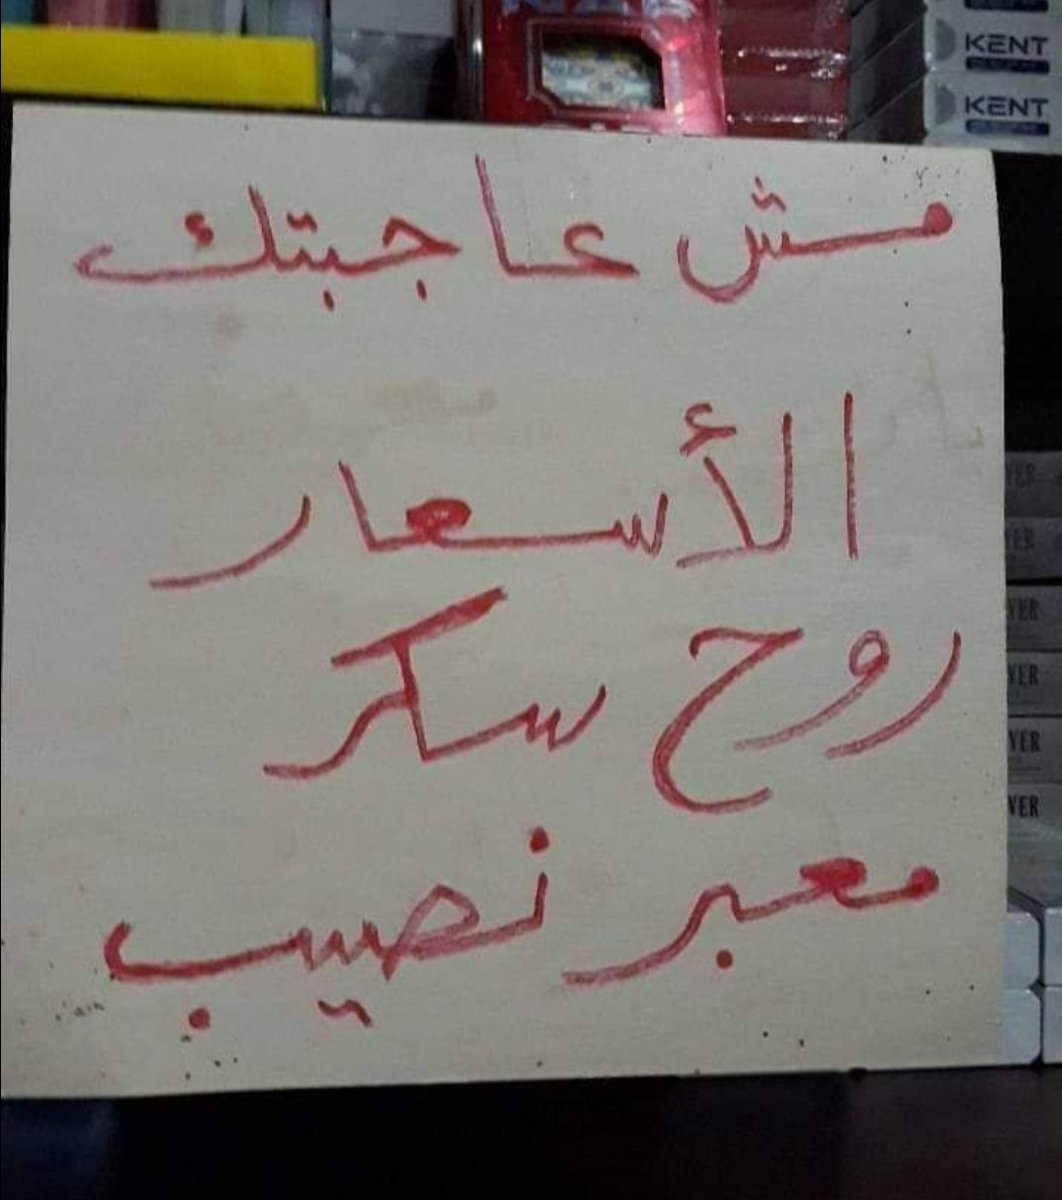 KENT
KENT
مش عاجبتك
الأسعار
روح سكر
معبر نصيب
VER
VER
VER
VER
VER